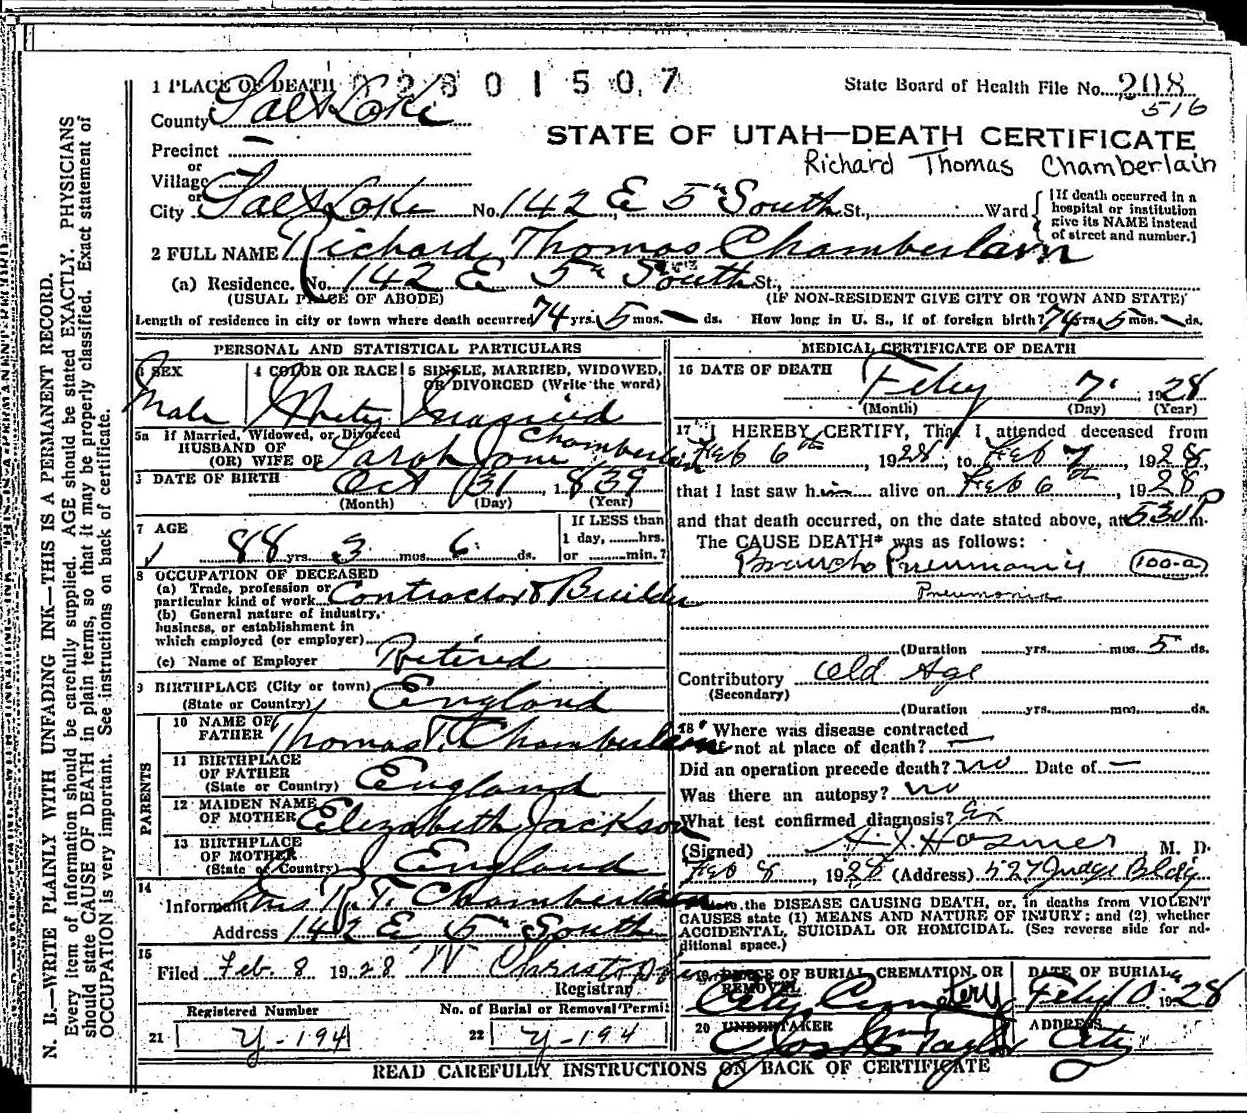 N. B.—WRITE PLAINLY WITH UNFADING INK—THIS IS A PERMANENT RECORD.
Every item of information should be carefully supplied. AGE should be stated EXACTLY. PHYSICIANS
should state CAUSE OF DEATH in plain terms, so that it may be properly classified. Exact statement of
OCCUPATION is very important. See instructions on back of certificate.
1 PLACE OF DEATH 2801507
State Board of Health File No. 208
516
County Salt Lake
STATE OF UTAH—DEATH CERTIFICATE
Richard Thomas Chamberlain
Precinct —
or
Village —
or
City Salt Lake No. 142 E 5th South St., Ward
[If death occurred in a
hospital or institution
give its NAME instead
of street and number.]
2 FULL NAME Richard Thomas Chamberlain
(a) Residence. No. 142 E 5th South St.,
(USUAL PLACE OF ABODE) (IF NON-RESIDENT GIVE CITY OR TOWN AND STATE)
Length of residence in city or town where death occurred 74 yrs. 5 mos. — ds. How long in U. S., if of foreign birth? 74 yrs. 5 mos. — ds.
PERSONAL AND STATISTICAL PARTICULARS
3 SEX 4 COLOR OR RACE 5 SINGLE, MARRIED, WIDOWED,
OR DIVORCED (Write the word)
Male White Married
5a If Married, Widowed, or Divorced
HUSBAND OF
(OR) WIFE OF Sarah Jane Chamberlain
DATE OF BIRTH Oct 31 1839
(Month) (Day) (Year)
7 AGE
88 yrs. 3 mos. 6 ds.
If LESS than
1 day, hrs.
or min.?
8 OCCUPATION OF DECEASED
(a) Trade, profession or
particular kind of work Contractor & Builder
(b) General nature of industry,
business, or establishment in
which employed (or employer)
(c) Name of Employer Retired
9 BIRTHPLACE (City or town)
(State or Country) England
PARENTS
10 NAME OF
FATHER Thomas T. Chamberlain
11 BIRTHPLACE
OF FATHER
(State or Country) England
12 MAIDEN NAME
OF MOTHER Elizabeth Jackson
13 BIRTHPLACE
OF MOTHER
(State or Country) England
14
Informant Mrs R. T. Chamberlain
Address 142 E 5th South
15
Filed Feb. 8 1928
Registrar
Registered Number
21 Y-194
No. of Burial or Removal Permit
22 Y-194
MEDICAL CERTIFICATE OF DEATH
16 DATE OF DEATH Feby 7 1928
(Month) (Day) (Year)
17 I HEREBY CERTIFY, That I attended deceased from
Feb 6th, 1928, to Feb 7, 1928,
that I last saw him alive on Feb 6th, 1928
and that death occurred, on the date stated above, at 530 P m.
The CAUSE DEATH* was as follows:
Broncho Pneumonia 100-a
Pneumonia
(Duration yrs. mos. 5 ds.
Contributory Old Age
(Secondary)
(Duration yrs. mos. ds.
18 Where was disease contracted
if not at place of death? —
Did an operation precede death? no Date of —
Was there an autopsy? no
What test confirmed diagnosis? Ex
(Signed) Hosmer M. D.
Feb 8, 1928 (Address) 527 Judge Bldg
*State the DISEASE CAUSING DEATH, or, in deaths from VIOLENT
CAUSES state (1) MEANS AND NATURE OF INJURY; and (2) whether
ACCIDENTAL, SUICIDAL OR HOMICIDAL. (See reverse side for additional space.)
19 PLACE OF BURIAL, CREMATION, OR
REMOVAL
City Cemetery
DATE OF BURIAL
Feby 10 1928
20 UNDERTAKER
Jos Wm Taylor
ADDRESS
City
READ CAREFULLY INSTRUCTIONS ON BACK OF CERTIFICATE